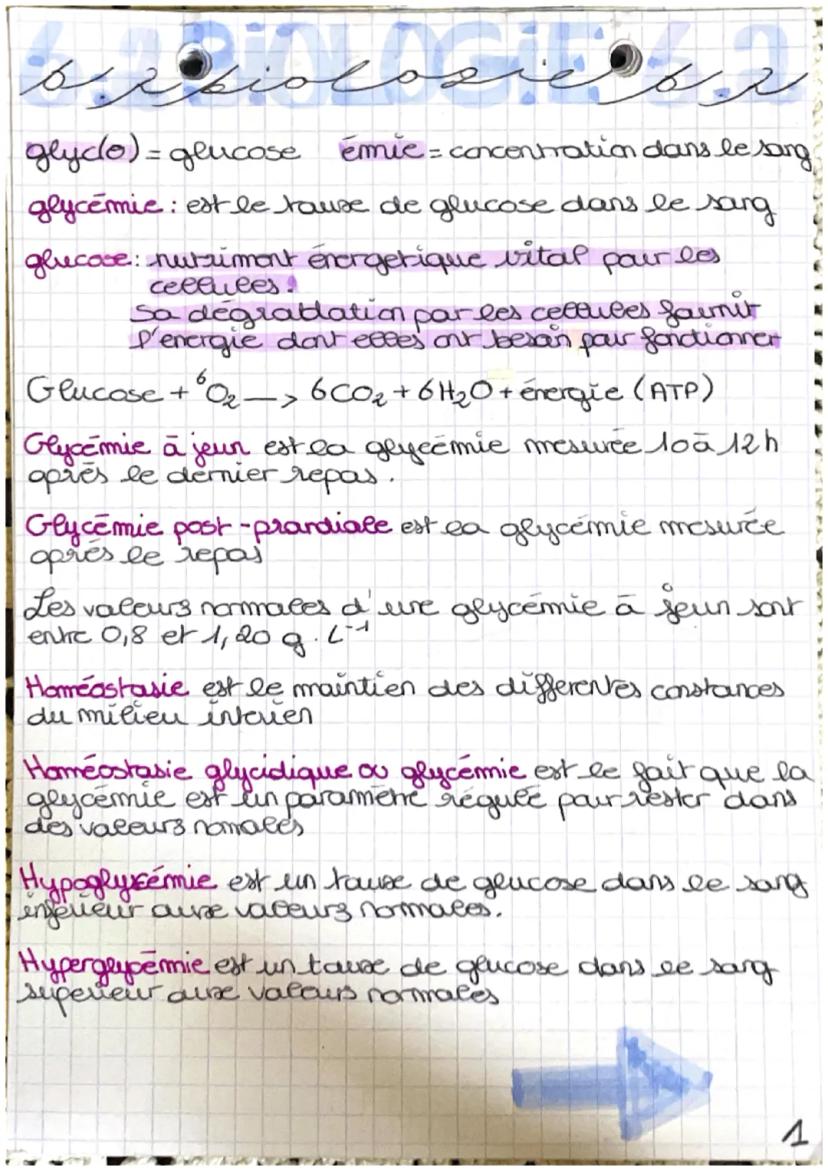 6.2 BiOLOGiE 6.2
6.2 biologie 6.2
glyc(o) = glucose émie = concentration dans le sang
glycémie : est le taux de glucose dans le sang
glucose : nutriment énergetique vital pour les
cellules.
Sa dégradation par les cellules fournit
l'energie dont elles ont besoin pour fonctionner
Glucose + 6O₂ —> 6CO₂ + 6H₂O + énergie (ATP)
Glycémie à jeun est la glycémie mesurée 10 à 12h
après le dernier repas.
Glycémie post-prandiale est la glycémie mesurée
après le repas
Les valeurs normales d'une glycémie à jeun sont
entre 0,8 et 1,20 g. L⁻¹
Homéostasie est le maintien des différentes constances
du milieu interien
Homéostasie glycidique ou glycémie est le fait que la
glycémie est un paramètre régulé pour rester dans
des valeurs nomales
Hypoglycémie est un taux de glucose dans le sang
inferieur aux valeurs normales.
Hyperglycémie est un taux de glucose dans le sang
superieur aux valeurs normales
1